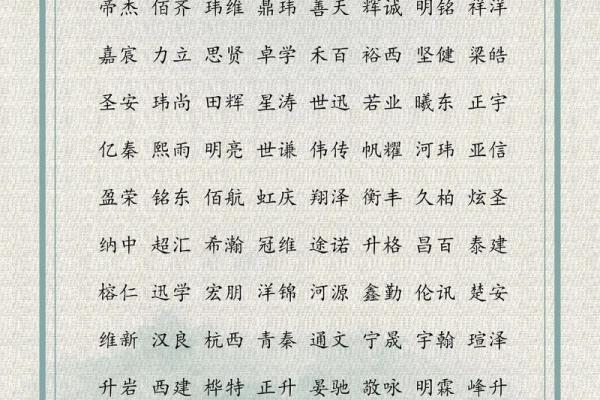 帝杰 佰齐 玮维 鼎玮 善天 辉诚 明铭 祥洋
嘉宸 力立 思贤 卓学 禾百 裕西 坚健 梁皓
圣安 玮尚 田辉 星涛 世迅 若业 曦东 正宇
亿秦 熙雨 明亮 世谦 伟传 帆耀 河玮 亚信
盈荣 铭东 佰航 虹庆 翔泽 衡丰 久柏 炫圣
纳中 超汇 希瀚 冠维 途诺 升格 昌百 泰建
榕仁 迅学 宏朋 洋锦 河源 鑫勤 伦讯 楚安
维新 汉良 杭西 青秦 通文 宁晟 宇翰 瑄泽
升岩 西建 桦特 正升 晏驰 敬咏 明霖 峰升